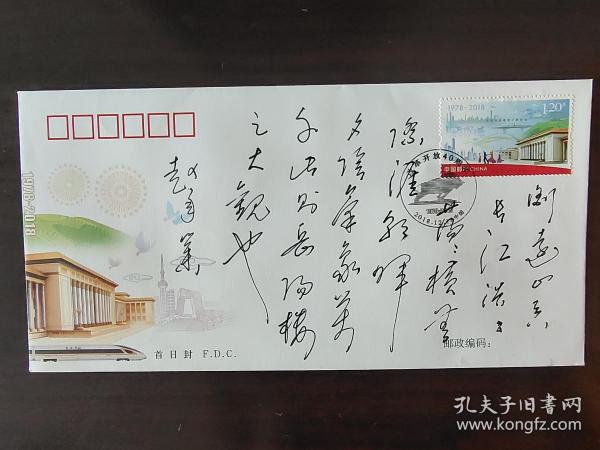 1978-2018
120分
中国邮政 CHINA
改革开放40周年
2018.12.18
衔远山吞
长江浩々
荡々横无
际涯朝晖
夕阴气象万
千此则岳阳楼
之大观也
1978-2018
首日封 F.D.C.
邮政编码:
孔夫子旧书网
www.kongfz.com